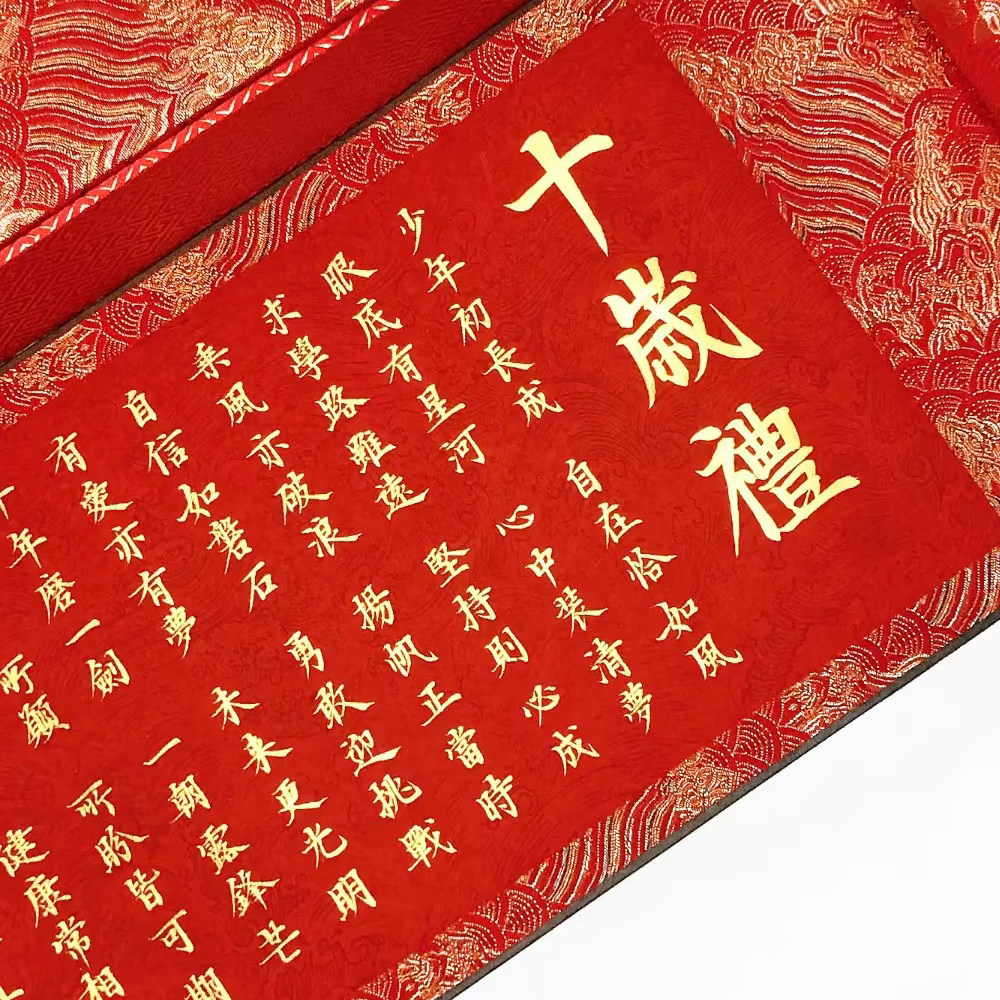 十歲禮
少年初長成 自在恰如風
眼底有星河 心中装清夢
求學路雖遠 堅持則必成
乘風亦破浪 揚帆正當時
自信如磐石 勇敢迎挑戰
有愛亦有夢 未来更光明
十年磨一劍 一朝露鋒芒
所願 所盼皆可期
健康常相